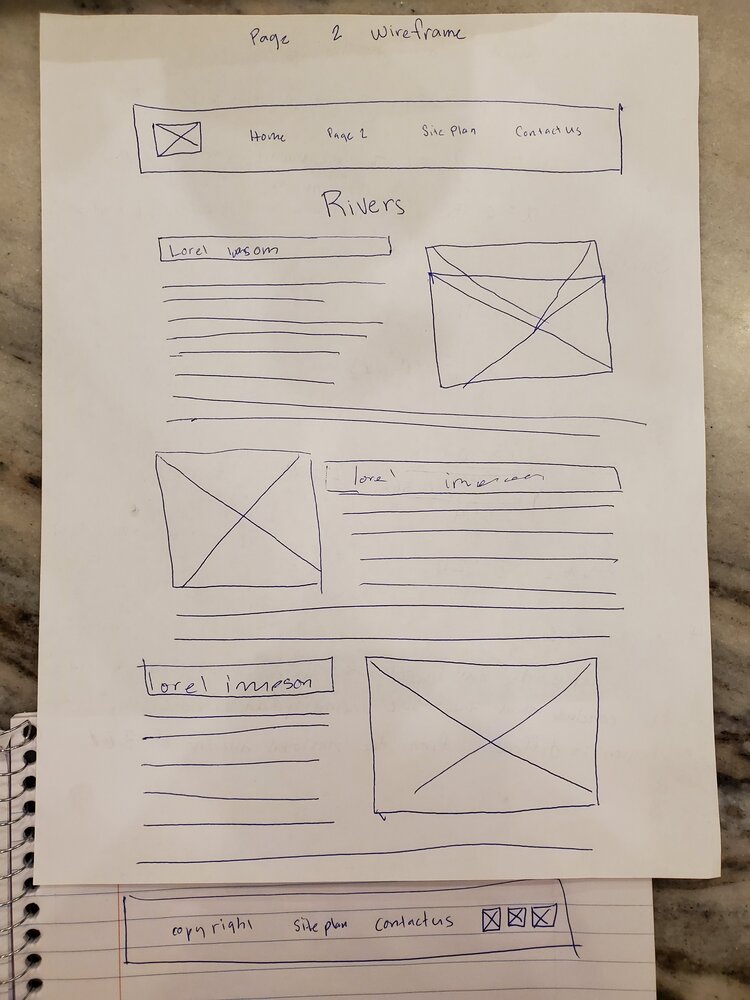 Page 2 Wireframe
Home Page 2 Site Plan Contact us
Rivers
Lorel Ipsom
lorel
lorel immpeson
copyright Site plan Contact us